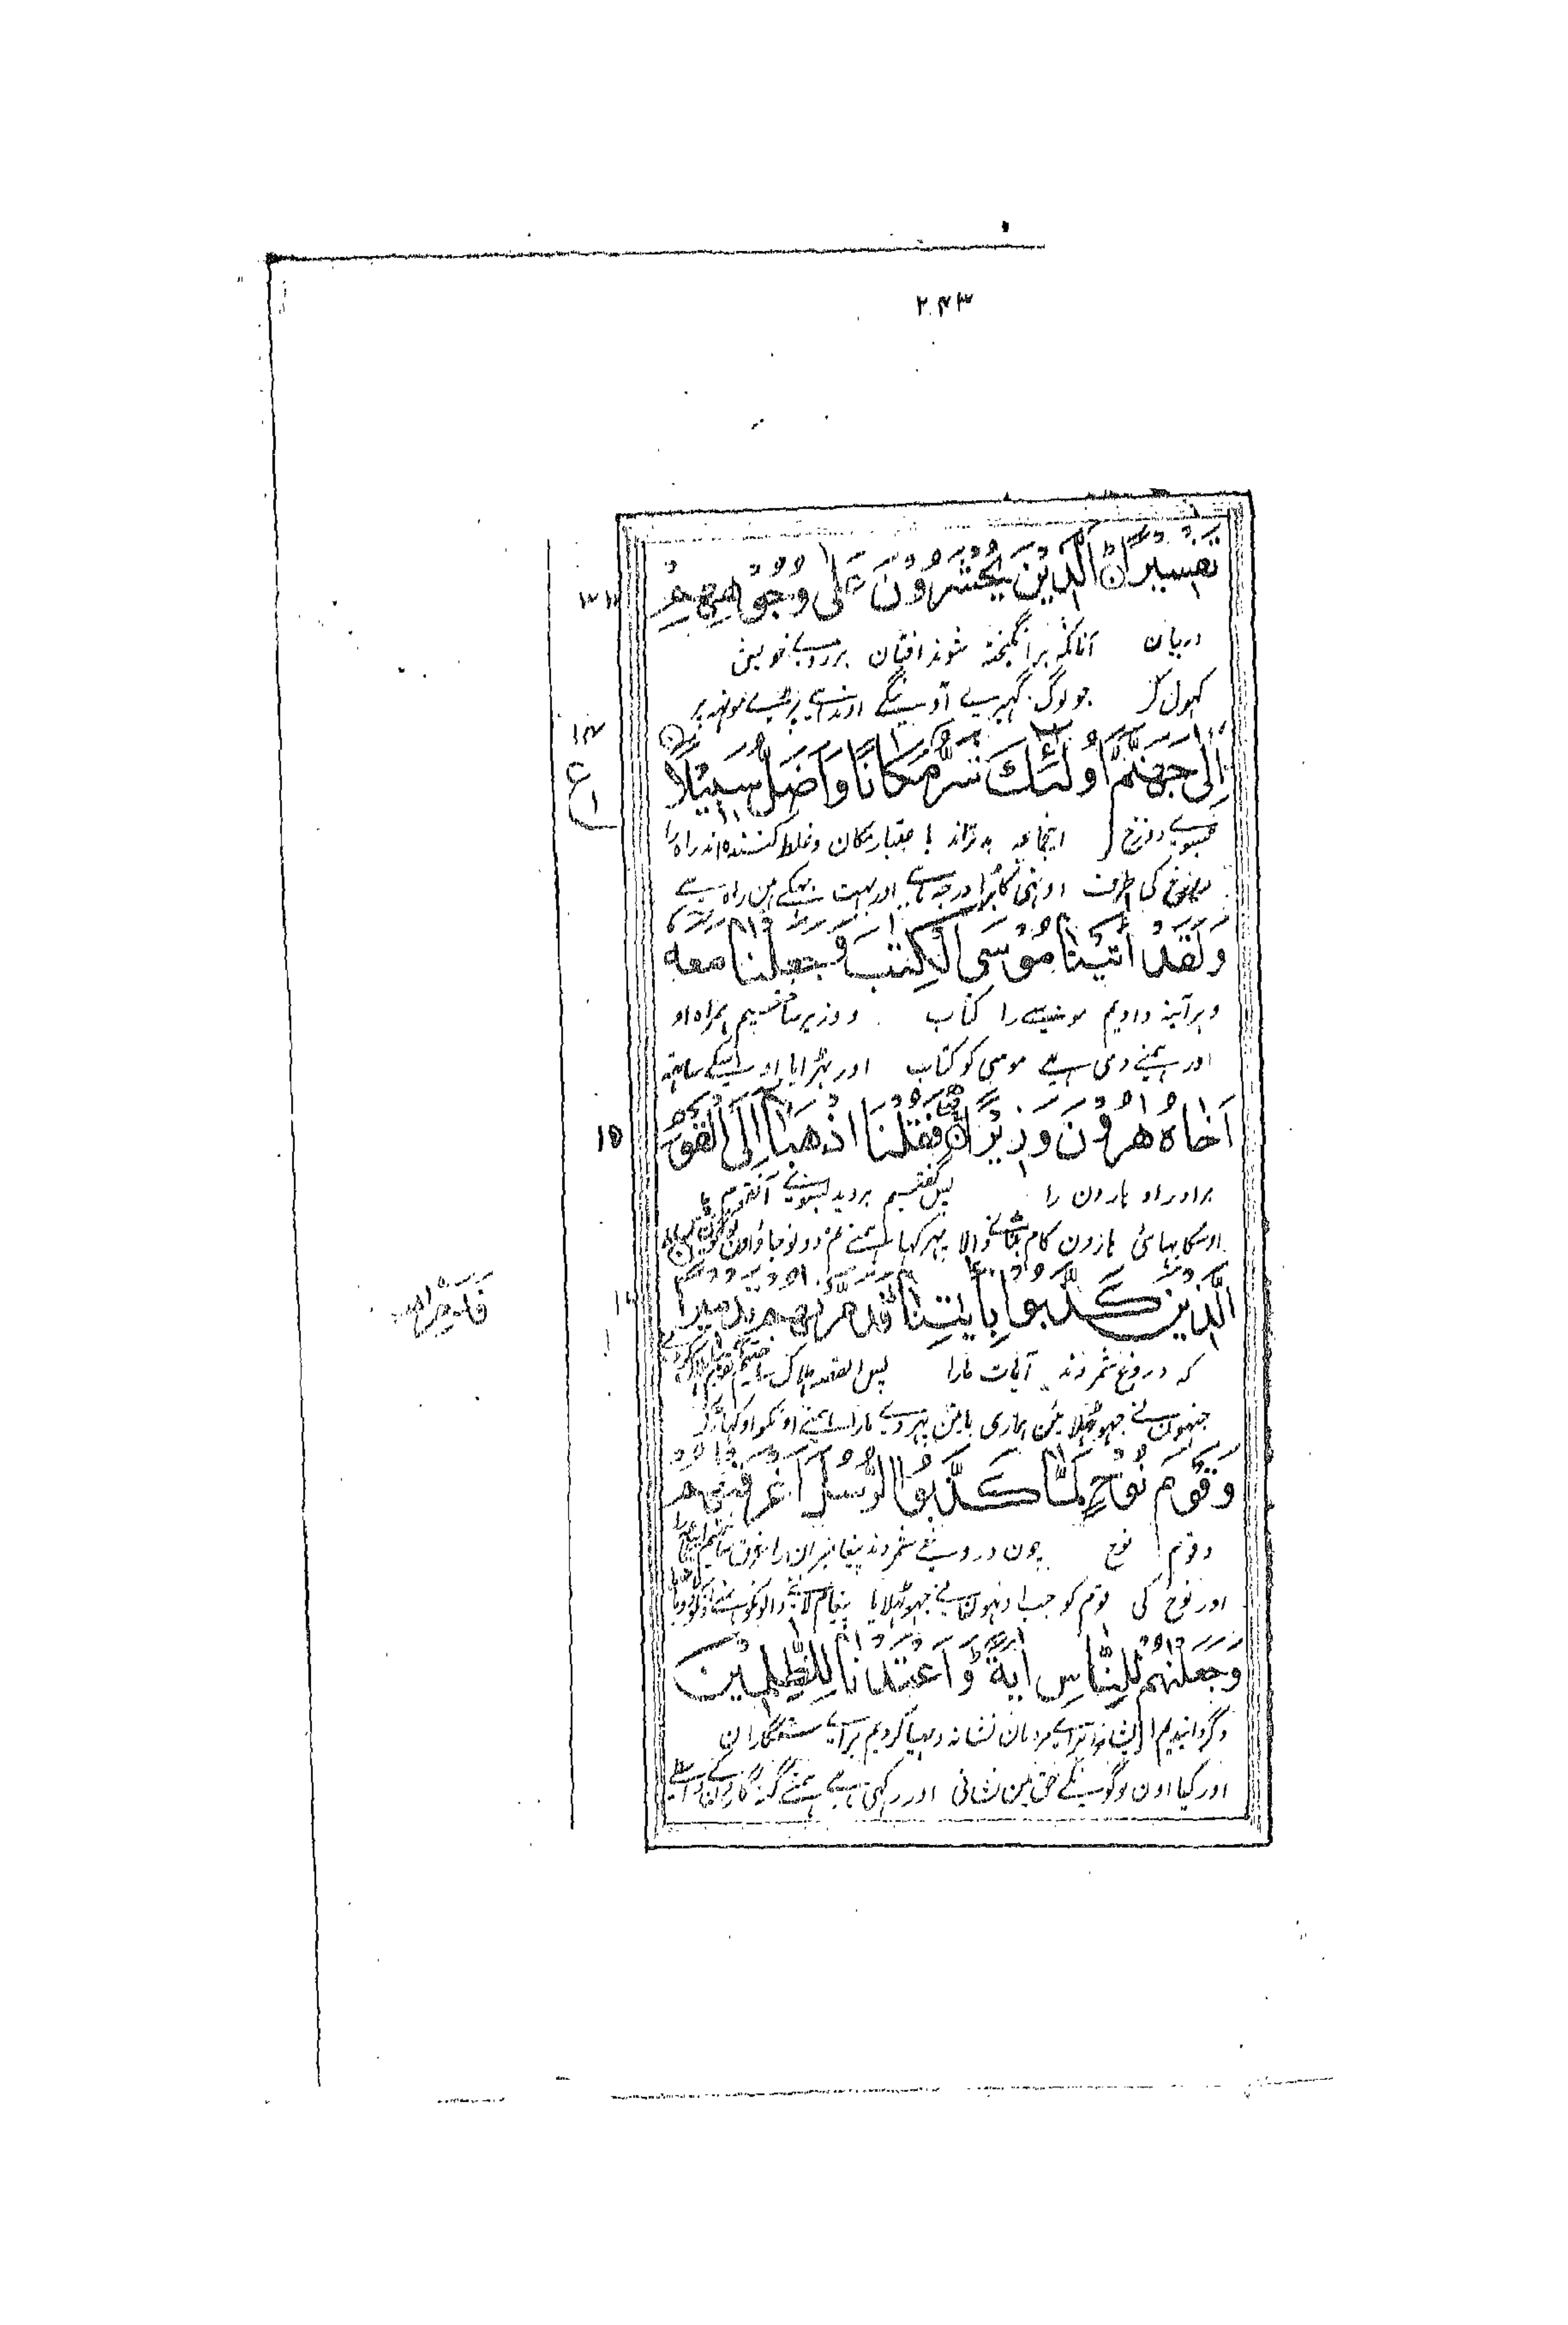 ۲۴۳
تَفْسِيْرًا الَّذِيْنَ يُحْشَرُوْنَ عَلٰى وُجُوْهِهِمْ
در بیان آنانکه برانگیخته شوند افتان بر روے خویش
کہول کر جو لوگ گہیرے آوینگے اوندہے پڑے مونہہ پر
اِلٰى جَهَنَّمَ اُولٰٓئِكَ شَرٌّ مَّكَانًا وَّاَضَلُّ سَبِيْلًا
بسوے دوزخ اینجماعه بدتراند باعتبار مکان و غلط کننده اند راه را
دوزخ کی طرف اونہی کا بُرا درجہ ہے اور بہت بہکے ہین راہ سے
وَلَقَدْ اٰتَيْنَا مُوْسَى الْكِتٰبَ وَجَعَلْنَا مَعَهٗٓ
و ہر آینه دادیم موسے را کتاب و وزیر ساختیم ہمراه او
اور ہمنے دی ہے موسی کو کتاب اور ٹہرایا اوسکے ساتہہ
اَخَاهُ هٰرُوْنَ وَزِيْرًا فَقُلْنَا اذْهَبَآ اِلَى الْقَوْمِ
برادر او ہارون را پس گفتیم بروید بسوے آنقوم
اوسکا بہائی ہارون کام بٹانے والا پہر کہا ہمنے تم دونو جاؤ اون
الَّذِيْنَ كَذَّبُوْا بِاٰيٰتِنَا فَدَمَّرْنٰهُمْ تَدْمِيْرًا
که دروغ شمردند آیات مارا پس القصه ہلاک ساختیم
جنہون نے جہوٹہلائین ہماری باتین پہر دے مارا ہمنے اونکو اوکہاڑ کر
وَقَوْمَ نُوْحٍ لَّمَّا كَذَّبُوا الرُّسُلَ اَغْرَقْنٰهُمْ
و قوم نوح چون دروغ شمردند پیغامبران را غرق ساختیم
اور نوح کی قوم کو جب اونہون نے جہوٹہلایا پیغام لانے والونکو ہمنے
وَجَعَلْنٰهُمْ لِلنَّاسِ اٰيَةً وَاَعْتَدْنَا لِلظّٰلِمِيْنَ
و گردانیدیم ایشانرا براے مردمان نشانه و مہیا کردیم براے ستمگاران
اور کیا اون لوگونکے حق مین نشانی اور رکہی ہے ہمنے گنہگارون کے واسطے
۱۴
ع
۱۵